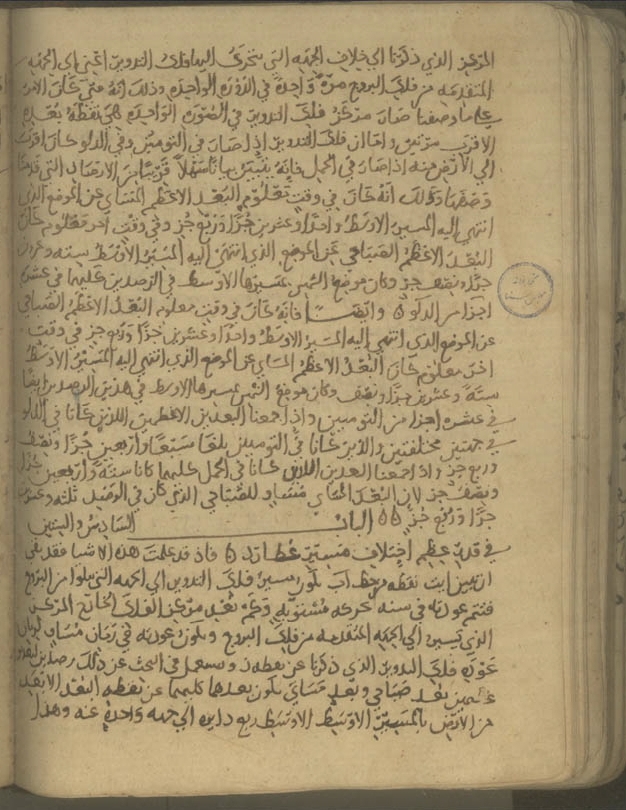 المركز الذي ذكرنا الي خلاف الجهه التي يتحرك اليها فلك التدوير اعني الي الجهه
المتقدمه من فلك البروج مرّه واحدة في الدوره الواحدة وذلك انه متى كان الامر
على ما وصفنا صار مركز فلك التدوير في الدوره الواحده في نقطه بعده
الاقرب مرتين واما ان فلك التدوير اذا صار في التومين وفي الدلو كان اقرب
الي الأرض منه اذا صار في الحمل فانه يتبين بيانا سهلا قريبا من الارصاد التي قدمنا
وصفها وذلك انه كان في وقت معلوم البعد الاعظم المسائي عن الموضع الذي
انتهى اليه المسير الاوسط واحدا وعشرين جزا وربع جز وفي وقت آخر معلوم كان
البعد الاعظم الصباحي عن الموضع الذي انتهى اليه المسير الاوسط سته وعشرين
جزا ونصف جز وكان موضع الشمس بمسيرها الاوسط في الرصدين كليهما في عشره
اجزا من الدلو وايضا فانه كان في وقت معلوم البعد الاعظم الصباحي
عن الموضع الذي انتهى اليه المسير الاوسط واحدا وعشرين جزا وربع جز في وقت
اخر معلوم كان البعد الاعظم المسائي عن الموضع الذي انتهى اليه المسير الاوسط
ستة وعشرين جزا ونصف وكان موضع الشمس بمسيرها الاوسط في هذين الرصدين ايضا
في عشره اجزا من التومين واذا جمعنا البعدين الاعظمين اللذين كانا في الدلو
في جهتين مختلفتين والذين كانا في التومين بلغا سبعا واربعين جزا ونصف
وربع جز واذا جمعنا البعدين اللذين كانا في الحمل كليهما كانا ستة واربعين جزا
ونصف جز لان البعد المسائي مساو للصباحي الذي كان في الرصد ثلثه وعشرين
جزا وربع جز الباب السادس والستين
في قدر عظم اختلاف مسير عطارد فاذ قد علمت هذه الاشيا فقد بقى
ان نبين ايت نقطه من خط اب يكون مسير فلك التدوير الي الجهه التي تتلوا من البروج
فتتم عودته في سنه حركه مستويه وكم بعد مركز الفلك الخارج المركز
الذي تسير الي الجهه المتقدمه من فلك البروج وتكون عودته في زمان مساو لزمان
عوده فلك التدوير الذي ذكرنا عن نقطه ونستعمل في البحث عن ذلك رصدين لبعدين
عظيمين بعد صباحي وبعد مسائي يكون بعدها كليهما عن نقطه البعد الابعد
من الارض بالمسير الاوسط الاوسط ربع دايره الي جهه واحدة عنه وهذا